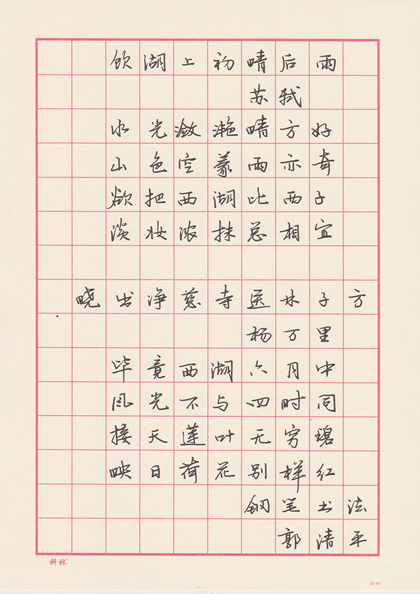 饮湖上初晴后雨
苏轼
水光潋滟晴方好
山色空蒙雨亦奇
欲把西湖比西子
淡妆浓抹总相宜
晓出净慈寺送林子方
杨万里
毕竟西湖六月中
风光不与四时同
接天莲叶无穷碧
映日荷花别样红
钢笔书法
郭清平
科林